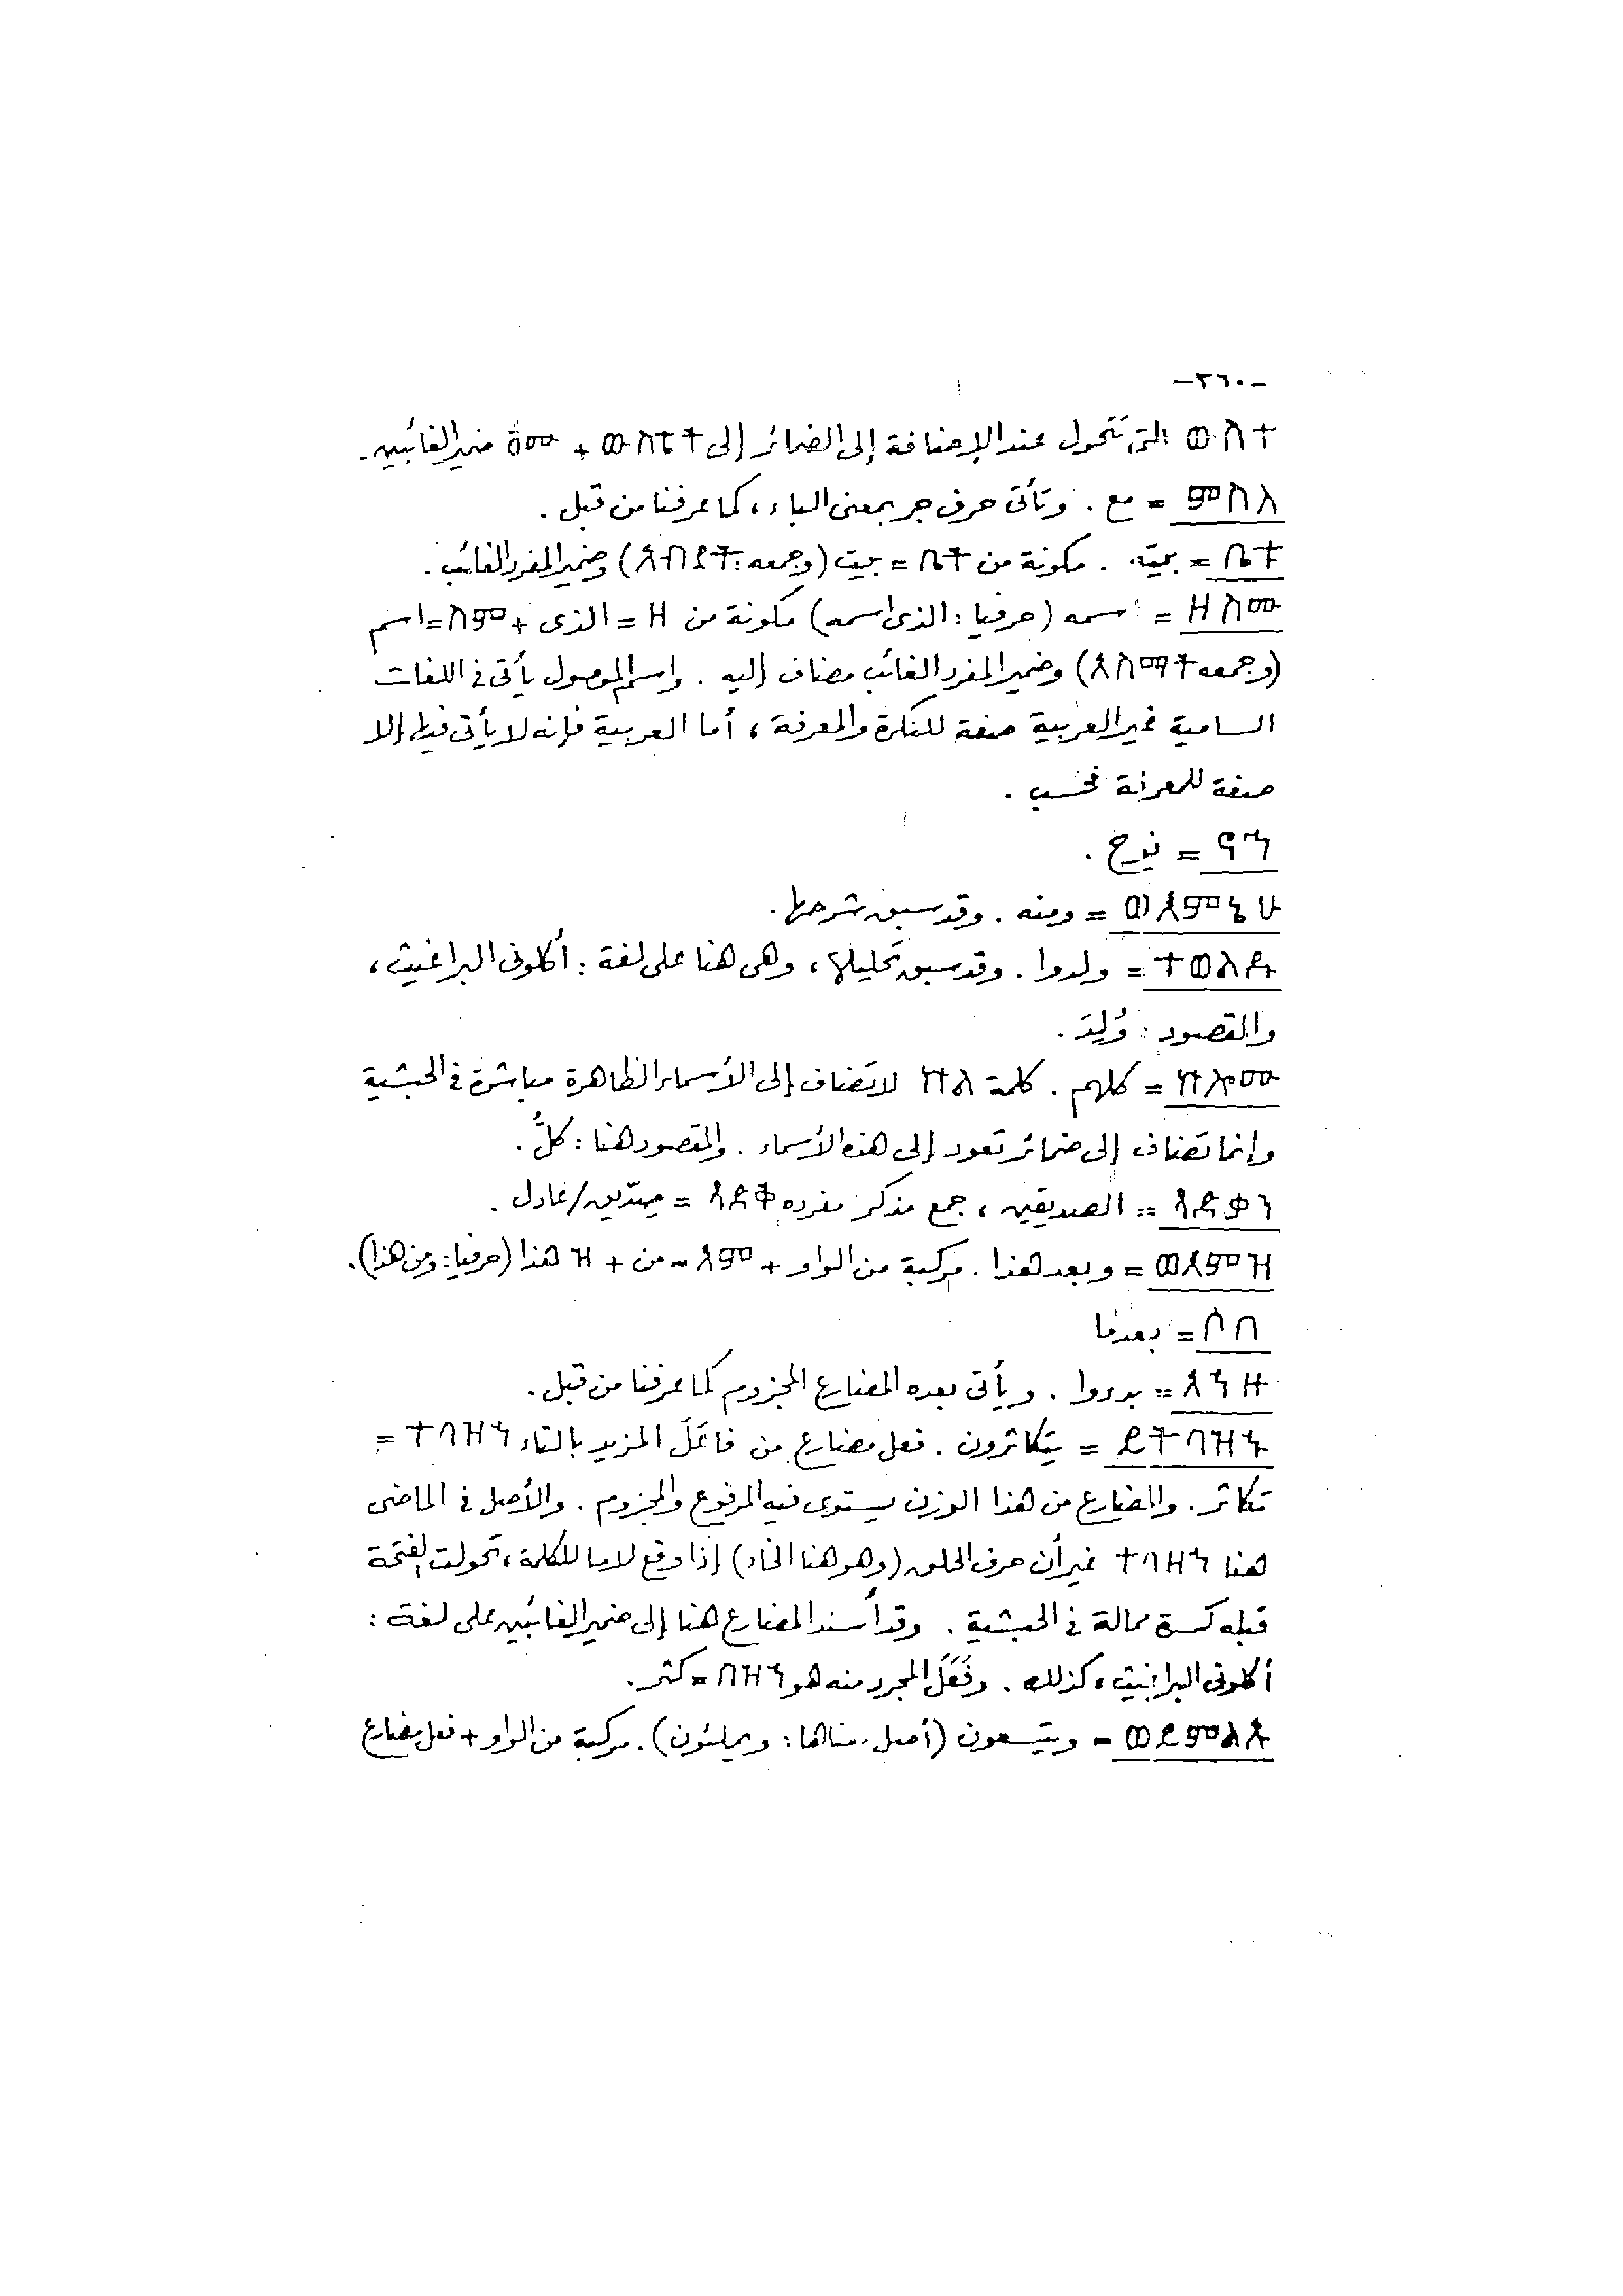 -٣٦٠-
ውስተ التى تتحول عند الإضافة إلى الضمائر إلى ውስቴት + ሆሙ ضمير الغائبين.
ምስለ = مع . وتأتى حرف جر بمعنى الباء ، كما عرفنا من قبل .
ቤቱ = بيته . مكونة من ቤት = بيت (وجمعه : አብያት) وضمير المفرد الغائب .
ዘስሙ = اسمه (حرفيا : الذى اسمه) مكونة من ዘ = الذى + ስም = اسم
(وجمعه አስማት) وضمير المفرد الغائب مضاف إليه . واسم الموصول يأتى فى اللغات
السامية غير العربية صفة للنكرة والمعرفة ، أما العربية فإنه لا يأتى فيها إلا
صفة للمعرفة فحسب .
ኖኅ = نوح .
ወእምኔሁ = ومنه . وقد سبق شرحها .
ተወልዱ = ولدوا . وقد سبق تحليلها ، وهى هنا على لغة : أكلونى البراغيث ،
والمقصود : وُلِدَ .
ኵሎሙ = كلهم . كلمة ኵል لا تضاف إلى الأسماء الظاهرة مباشرة فى الحبشية
وإنما تضاف إلى ضمائر تعود إلى هذه الأسماء . والمقصود هنا : كلُّ .
ጻድቃን = الصديقين ، جمع مذكر مفرده ጻድቅ = صِدّيق/عادل .
ወእምዝ = وبعد هذا . مركبة من الواو + እም = من + ዝ هذا (حرفيا : ومن هذا).
ሶበ = بعدما
አኀዙ = بدءوا . ويأتى بعده المضارع المجزوم كما عرفنا من قبل .
ይትባዝኁ = يتكاثرون . فعل مضارع من فاعَلَ المزيد بالتاء ተባዝኀ =
تكاثر . والمضارع من هذا الوزن يستوى فيه المرفوع والمجزوم . والأصل فى الماضى
هنا ተባዘኀ غير أن حرف الحلق (وهو هنا الخاء) إذا وقع لاما للكلمة ، تحولت الفتحة
قبله كسرة ممالة فى الحبشية . وقد أسند المضارع هنا إلى ضمير الغائبين على لغة :
أكلونى البراغيث ، كذلك . وفَعَلَ المجرد منه هو በዝኀ = كثر .
ወይምልኡ = ويتسعون (أصل معناها : ويملئون) . مركبة من الواو + فعل مضارع